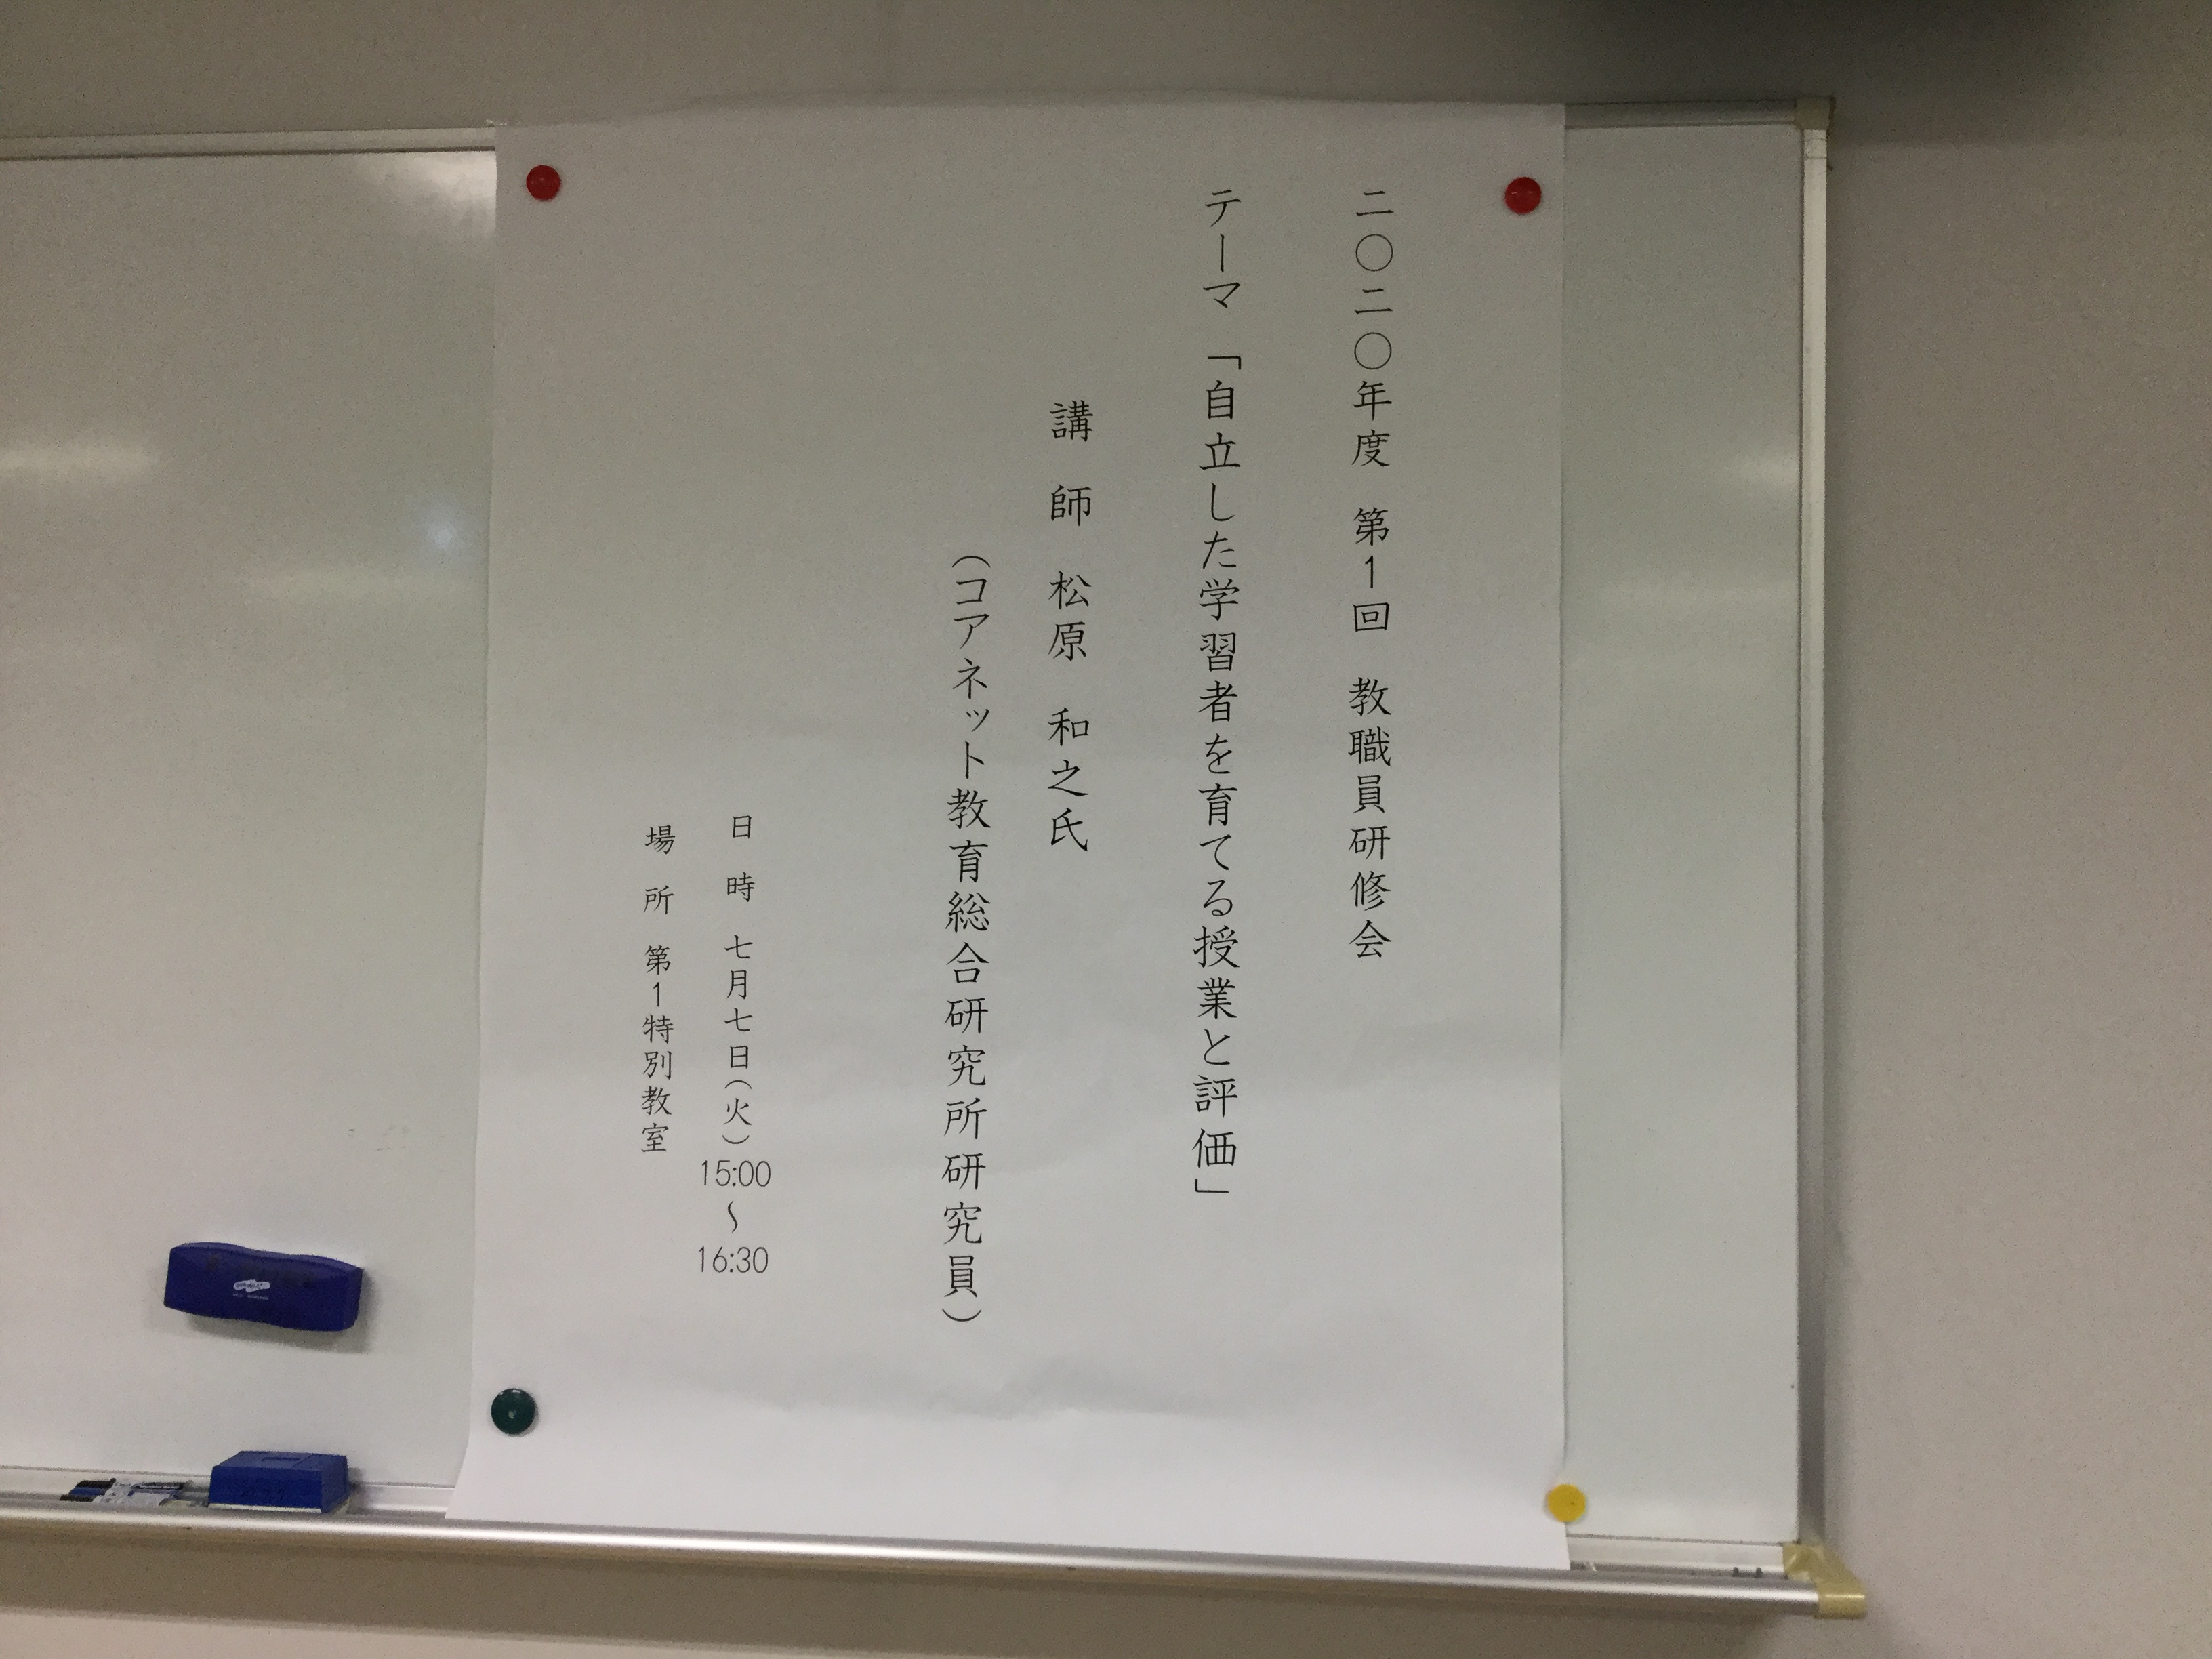 二〇二〇年度　第1回　教職員研修会
テーマ「自立した学習者を育てる授業と評価」
講　師　松原　和之氏
（コアネット教育総合研究所研究員）
日　時　七月七日（火）15:00～16:30
場　所　第1特別教室